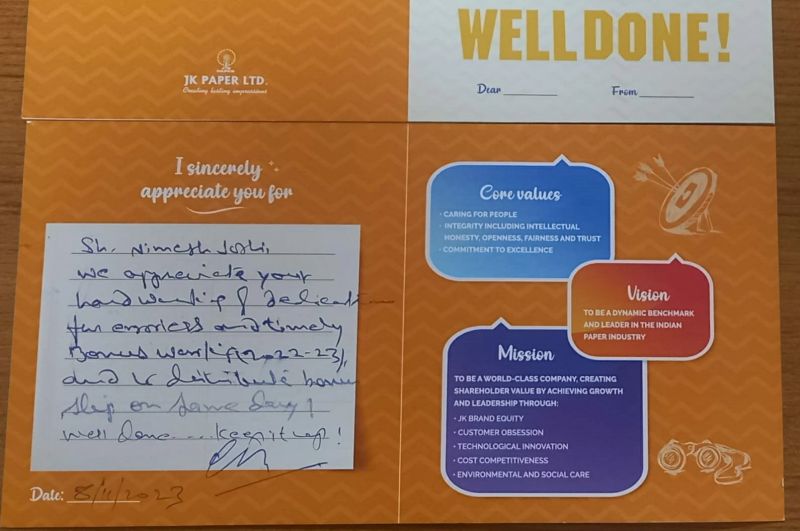 WELL DONE!
Dear
From
JK PAPER LTD.
Creating lasting impressions
I sincerely
appreciate you for
Sh. Nimesh Joshi,
we appreciate your
hard working & dedication
for errorless and timely
Bonus working (2022-23),
and to distribute bonus
slip on same day!
well done... keep it up!
Date: 8/11/2023
Core values
• CARING FOR PEOPLE
• INTEGRITY INCLUDING INTELLECTUAL
HONESTY, OPENNESS, FAIRNESS AND TRUST
• COMMITMENT TO EXCELLENCE
Vision
TO BE A DYNAMIC BENCHMARK
AND LEADER IN THE INDIAN
PAPER INDUSTRY
Mission
TO BE A WORLD-CLASS COMPANY, CREATING
SHAREHOLDER VALUE BY ACHIEVING GROWTH
AND LEADERSHIP THROUGH:
• JK BRAND EQUITY
• CUSTOMER OBSESSION
• TECHNOLOGICAL INNOVATION
• COST COMPETITIVENESS
• ENVIRONMENTAL AND SOCIAL CARE